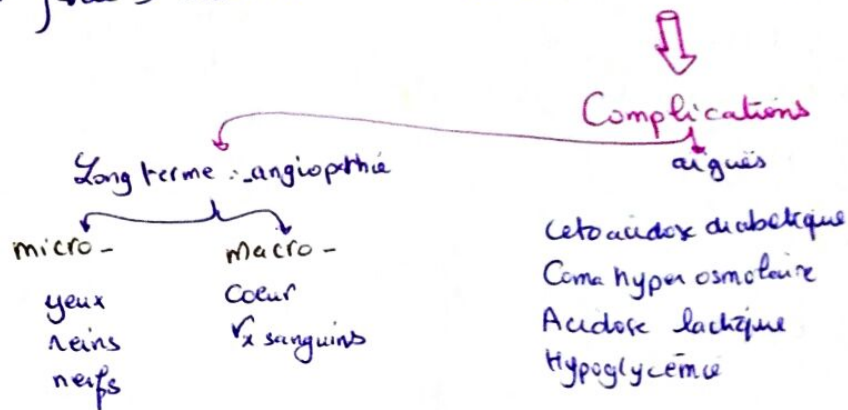 Complications
Long terme : angiopathie
aigues
micro -
macro -
yeux
reins
nerfs
Coeur
Vx sanguins
Cetoacidose diabetique
Coma hyperosmolaire
Acidose lactique
Hypoglycémie